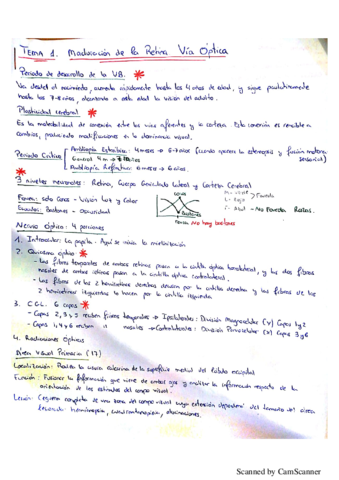 TEMA 1. Maduración de la Retina Vía Óptica
Periodo de desarrollo de la VB. *
Va desde el nacimiento, aumenta rápidamente hasta los 4 años de edad, y sigue paulatinamente
hasta los 7-8 años, alcanzando a esta edad la visión del adulto.
Plasticidad cerebral *
Es la maleabilidad de conexión entre las vías aferentes y la corteza. Esta conexión es sensible a
cambios, produciendo modificaciones en la dominancia visual.
Periodo Crítico
Ambliopía Estrábica: 4 meses → 6-7 años (cuando aparece la estereopsis y fusión motora
sensorial)
General
Ambliopía Refractiva: 6 meses → 6 años.
*
3 niveles neuronales: Retina, Cuerpo Geniculado Lateral y Corteza Cerebral
Fovea: solo Conos - Visión Luz y Color
Bastones - Oscuridad
Conos
Bastones
fovea No hay bastones
Fovealis
No Fovea
Nervio óptico: 4 porciones
1. Intraocular: La papila. Aquí se inicia la mielinización
2. Quiasma óptico *
- Las fibras temporales de ambas retinas pasan a la cintilla óptica homolateral, y las dos fibras
nasales de ambas retinas pasan a la cintilla óptica contralateral.
- Las fibras de las 2 hemiretinas derechas devienen por la cintilla derecha y las fibras de los
2 hemiretinas izquierdas lo hacen por la cintilla izquierda
3. C.G.L. 6 capas *
- Capas 2, 3 y 5 reciben fibras temporales → Ipsilaterales: División magnocelular (Y) Capas 1 y 2
- Capas 1, 4 y 6 reciben " nasales → Contralaterales: División Parvocelular (X) Capas 3 y 6
4. Radiaciones Ópticas
Área Visual Primaria (17)
Localización: Rodea la cisura calcarina de la superficie medial del lóbulo occipital
Función: Fusionar la información que viene de ambos ojos y analizar la información respecto de la
orientación de los estímulos del campo visual.
Lesión: Ceguera completa de una zona del campo visual cuya extensión dependerá del tamaño del área
lesionada: hemianopsia, cuadrantanopsia, alucinaciones.
Scanned by CamScanner